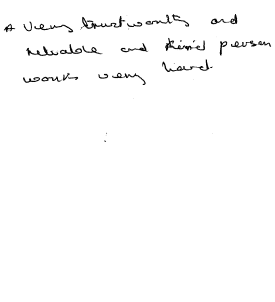 A very trustworthy and
reliable and kind person
works very hard